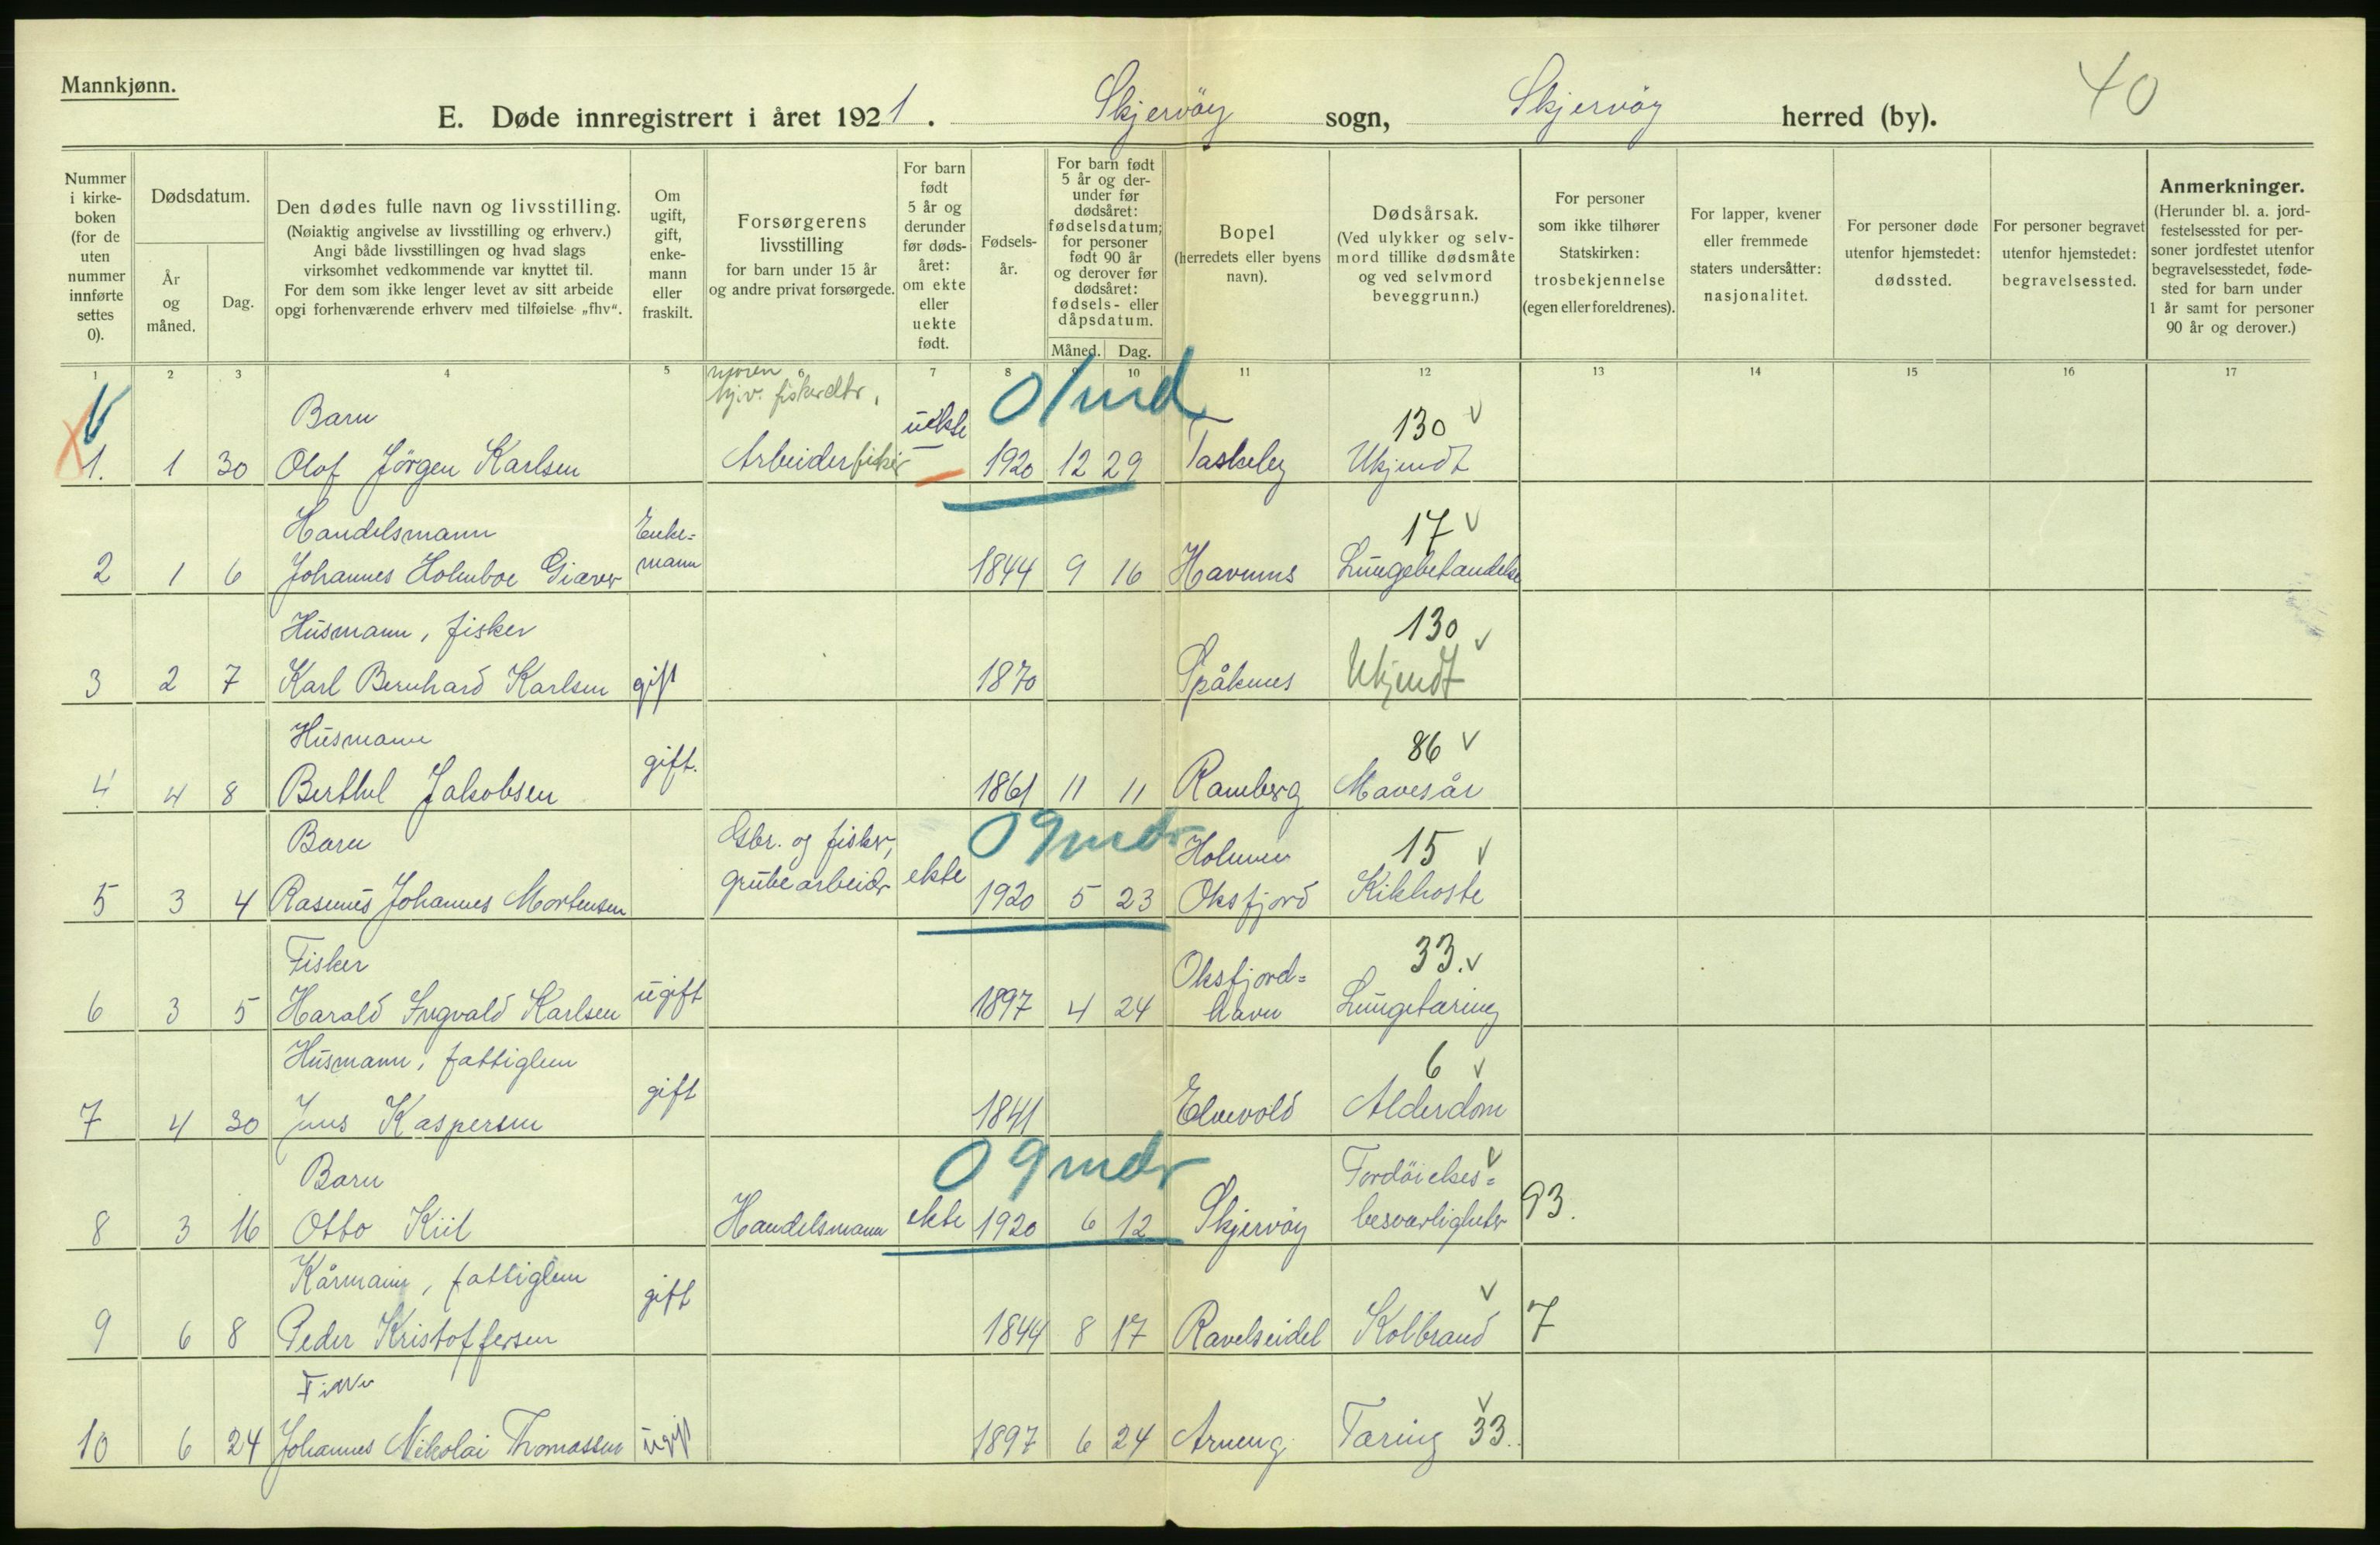 Mannkjønn.
E. Døde innregistrert i året 1921. Skjervöy sogn, Skjervöy herred (by). 40
Nummer i kirkeboken (for de uten nummer innførte settes 0).
Dødsdatum.
År og måned.
Dag.
Den dødes fulle navn og livsstilling.
(Nøiaktig angivelse av livsstilling og erhverv.)
Angi både livsstillingen og hvad slags
virksomhet vedkommende var knyttet til.
For dem som ikke lenger levet av sitt arbeide
opgi forhenværende erhverv med tilføielse „fhv“.
Om ugift, gift, enkemann eller fraskilt.
Forsørgerens livsstilling
for barn under 15 år
og andre privat forsørgede.
For barn født 5 år og derunder før dødsåret: om ekte eller uekte født.
Fødselsår.
For barn født 5 år og derunder før dødsåret: fødselsdatum; for personer født 90 år og derover før dødsåret: fødsels- eller dåpsdatum.
Måned. Dag.
Bopel
(herredets eller byens navn).
Dødsårsak.
(Ved ulykker og selvmord tillike dødsmåte og ved selvmord beveggrunn.)
For personer som ikke tilhører Statskirken: trosbekjennelse (egen eller foreldrenes).
For lapper, kvener eller fremmede staters undersåtter: nasjonalitet.
For personer døde utenfor hjemstedet: dødssted.
For personer begravet utenfor hjemstedet: begravelsessted.
Anmerkninger.
(Herunder bl. a. jordfestelsessted for personer jordfestet utenfor begravelsesstedet, fødested for barn under 1 år samt for personer 90 år og derover.)
1 2 3 4 5 6 7 8 9 10 11 12 13 14 15 16 17
moren hjv. fiskerdtr. 0/md
Barn uekte 130 v
1. 1 30 Olof Jörgen Karlsen Arbeider fisker 1920 12 29 Taskeby Ukjendt
Handelsmann Enke= 17 v
2 1 6 Johannes Holmboe Giæver mann 1844 9 16 Havnnes Lungebetandelse
Husmann, fisker 130 v
3 2 7 Karl Bernhard Karlsen gift 1870 Spåknes Ukjendt
Husmann gift. 86 v
4 4 8 Berthel Jakobsen 1861 11 11 Ramberg Mavesår
Barn Gbr. og fisker, 0 9 mdr Holmen 15 v
5 3 4 Rasmus Johannes Mortensen grubearbeidr ekte 1920 5 23 Oksfjord Kikhoste
Fisker Oksfjord= 33. v
6 3 5 Harald Ingvald Karlsen ugift 1897 4 24 havn Lungetæring
Husmann, fattiglem gift 6 v
7 4 30 Jens Kaspersen 1841 Elvevold Alderdom
Barn 0 9 mdr Fordöielses= v
8 3 16 Otto Kiil Handelsmann ekte 1920 6 12 Skjervöy besværligheter 93.
Kårmann, fattiglem gift v
9 6 8 Peder Kristoffersen 1844 8 17 Ravelseidet Kolbrand 7
Fisker v
10 6 24 Johannes Nikolai Thomassen ugift 1897 6 24 Arneng Tæring 33.